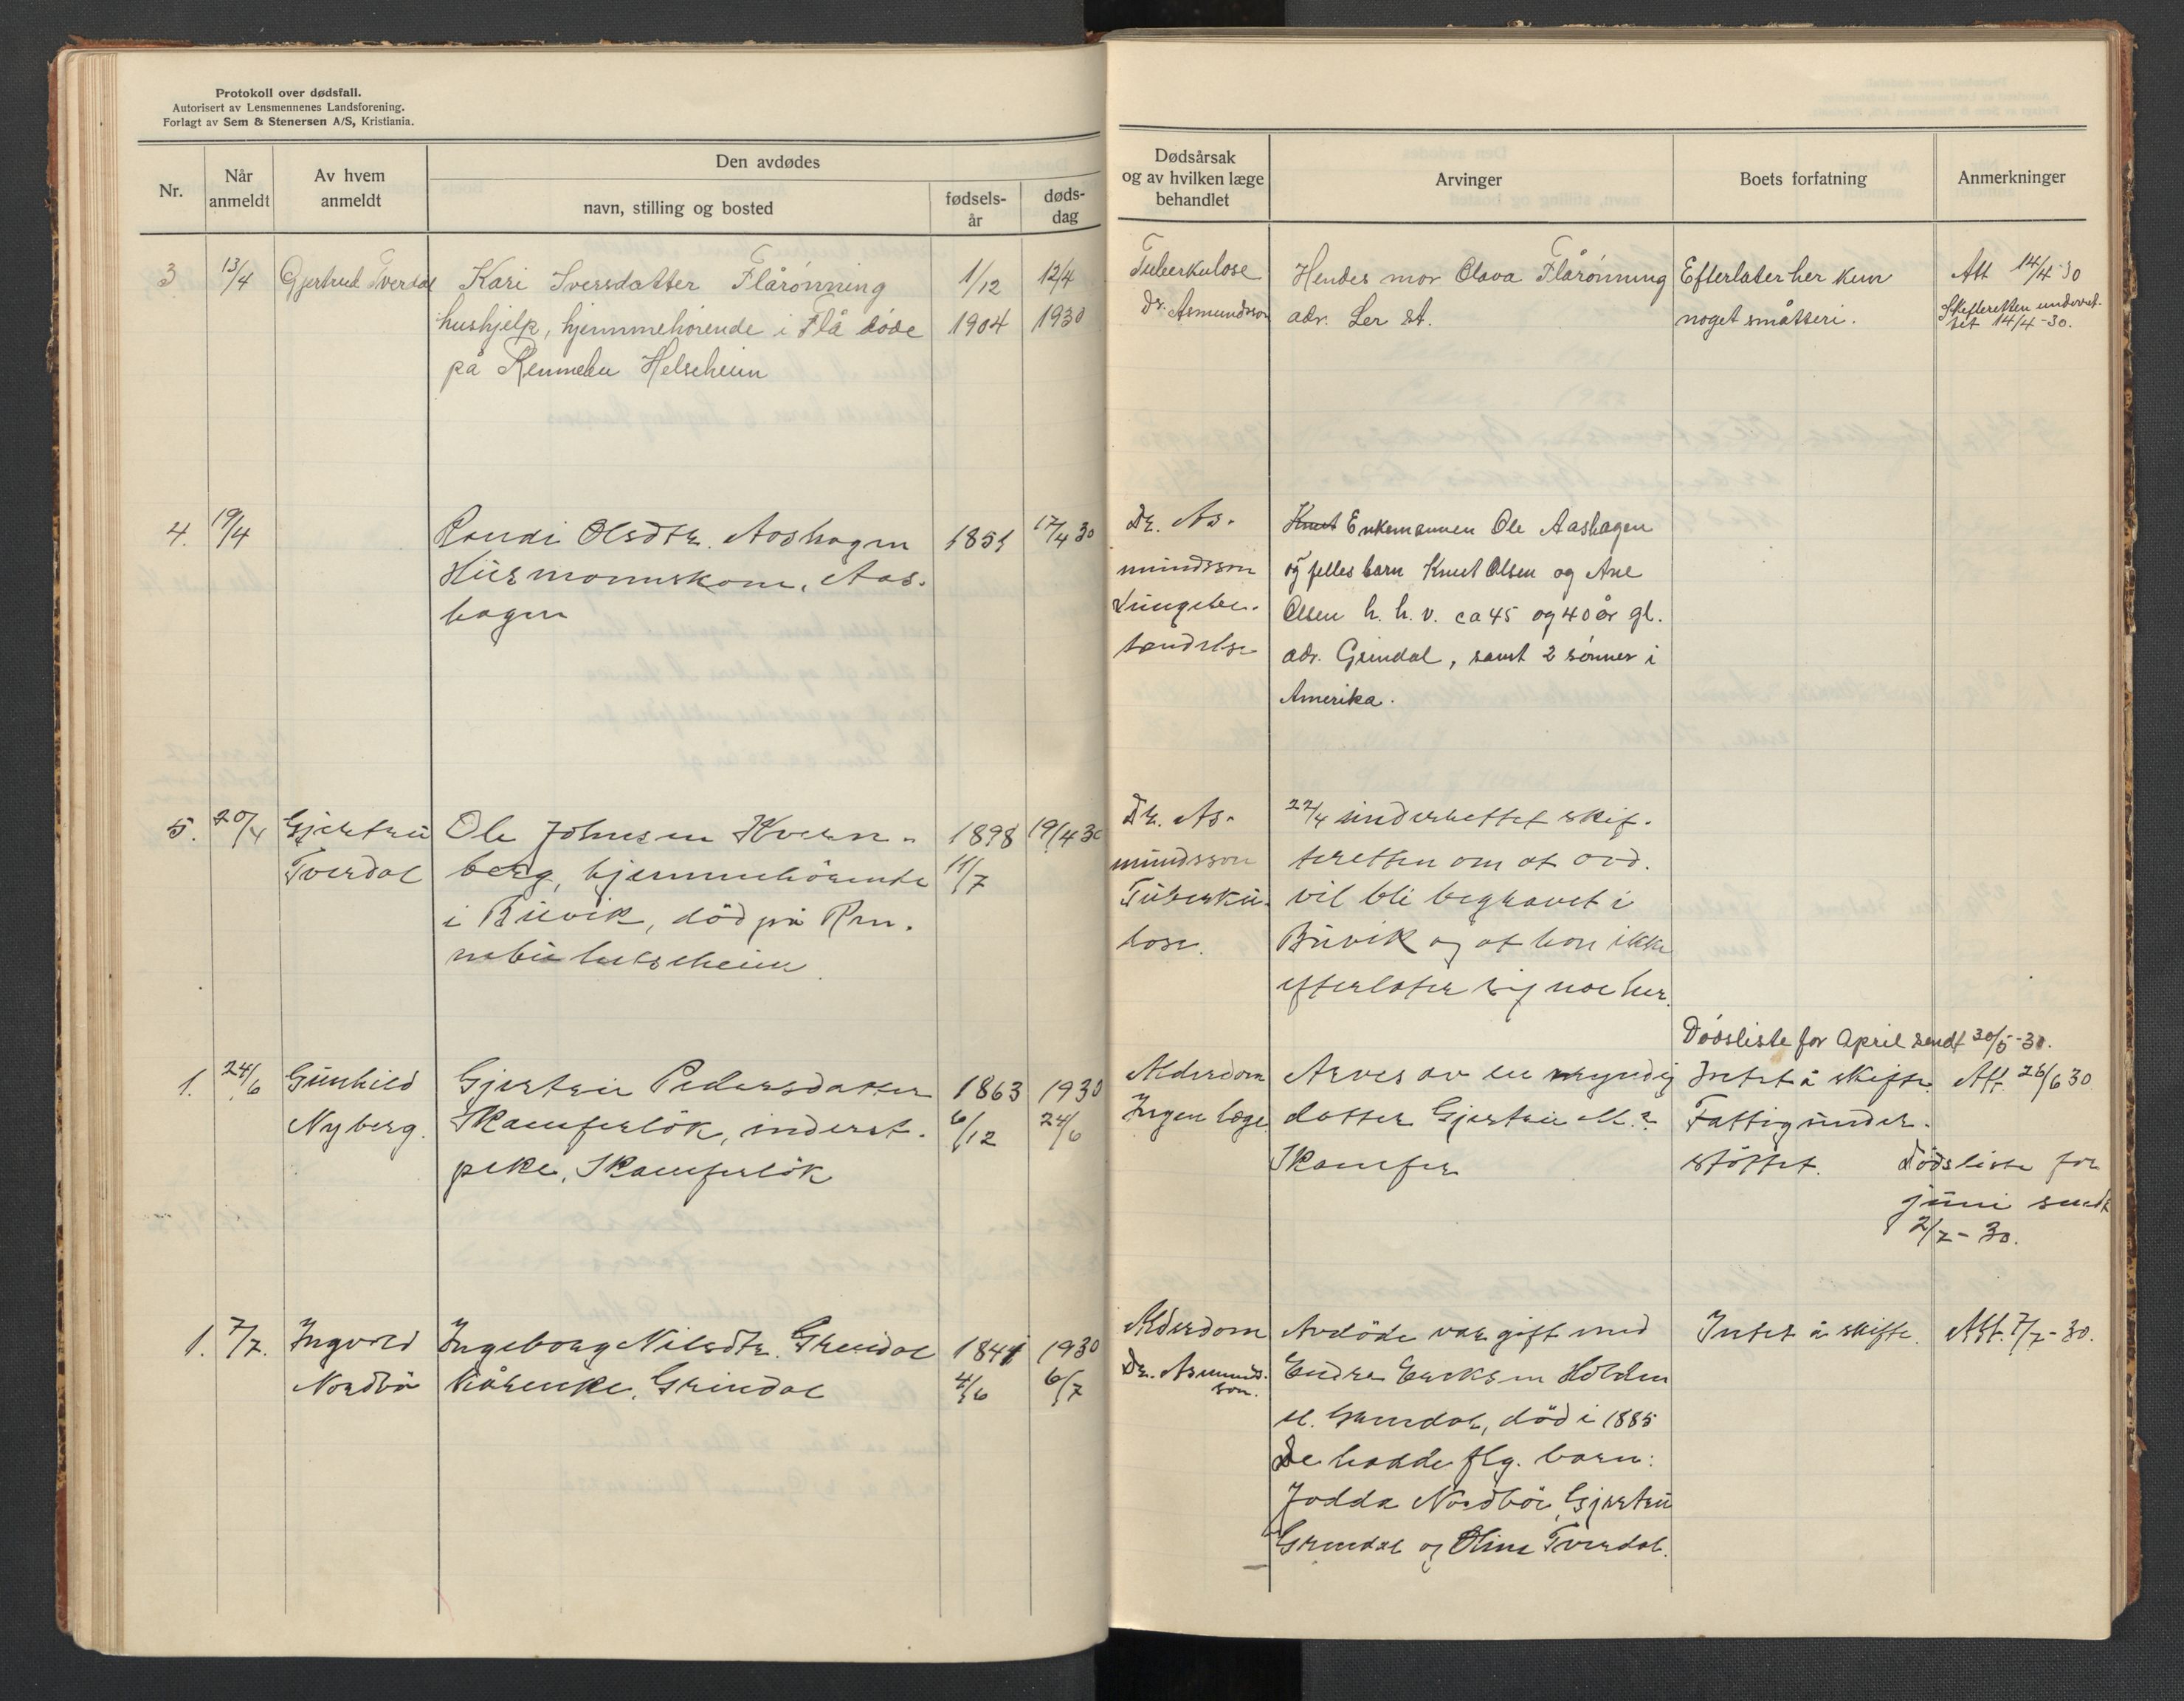 Protokoll over dødsfall.
Autorisert av Lensmennenes Landsforening.
Forlagt av Sem & Stenersen A/S, Kristiania.
Nr.
Når anmeldt
Av hvem anmeldt
Den avdødes
navn, stilling og bosted
fødsels-
år
døds-
dag
Dødsårsak
og av hvilken læge
behandlet
Arvinger
Boets forfatning
Anmerkninger
3 13/4 Gjertrud Tverdal
Kari Iversdatter Flårønning
hushjelp, hjemmehørende i Flå døde
på Rennebu Helseheim
1/12
1904
12/4
1930
Tuberkulose
Dr. Asmundsson
Hendes mor Olava Flårønning
adr. Ler st.
Efterlater her kun
noget småtteri.
Att 14/4-30
Skifteretten underret-
tet 14/4-30.
4. 19/4
Randi Olsdtr. Aashagen
Husmannskone, Aas-
hagen
1851
17/4 30
Dr. As-
mundsson
Lungebe-
tendelse
Knut Enkemannen Ole Aashagen
og felles barn Knut Olsen og Ane
Olsen h. h. v. ca 45 og 40 år gl.
adr. Grindal, samt 2 sønner i
Amerika.
5. 20/4 Gjertru
Tverdal
Ole Johnsen Kvern-
berg, hjemmehörende
i Buvik, död på Ren-
nebu helseheim
1898
11/7
19/4 30
Dr. As-
mundsson
Tuberku-
lose.
22/4 underrettet skif-
teretten om at avd.
vil bli begravet i
Buvik og at han ikke
efterlater sig noe her.
Dødsliste for April sendt 30/5-30.
1. 24/6 Gunhild
Nyberg.
Gjertru Pedersdatter
Skamferlök, inderst-
peke, Skamferlök
1863
6/12
1930
24/6
Alderdom
Ingen læge
Arves av en myndig
datter Gjertru M.?
Skamfer
Intet å skifte.
Fattigunder-
støttet.
Att. 26/6 30
Dödsliste for
juni sendt
2/7-30.
1. 7/7. Ingvald
Nordbö
Ingeborg Nilsdtr. Grindal
Kårenke, Grindal
1841
4/6
1930
6/7
Alderdom
Dr. Asmunds-
son.
Avdöde var gift med
Endre Eriksen Holden
el. Grindal, död i 1885
De hadde flg. barn:
Jodda Nordbö, Gjertru
Grindal og Oline Tverdal.
Intet å skifte.
Att. 7/7-30.